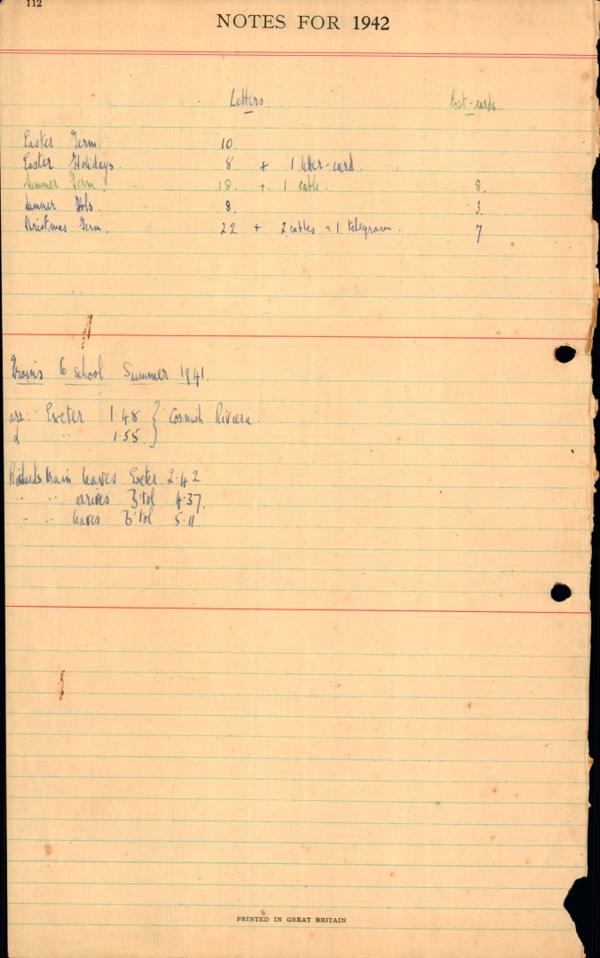 112
NOTES FOR 1942
Letters. Post-cards
Easter Term. 10.
Easter Holidays. 8 + 1 letter-card.
Summer Term. 18. + 1 cable. 8.
Summer Hols. 8. 3.
Christmas Term. 22 + 2 cables + 1 telegram. 7
Trains to school Summer 1941.
arr: Exeter 1.48 } Cornish Riviera.
d " 1.55. }
Richard's train leaves Exeter 2.42
" " arrives B'tol 4.37.
" " leaves B'tol 5.11.
PRINTED IN GREAT BRITAIN